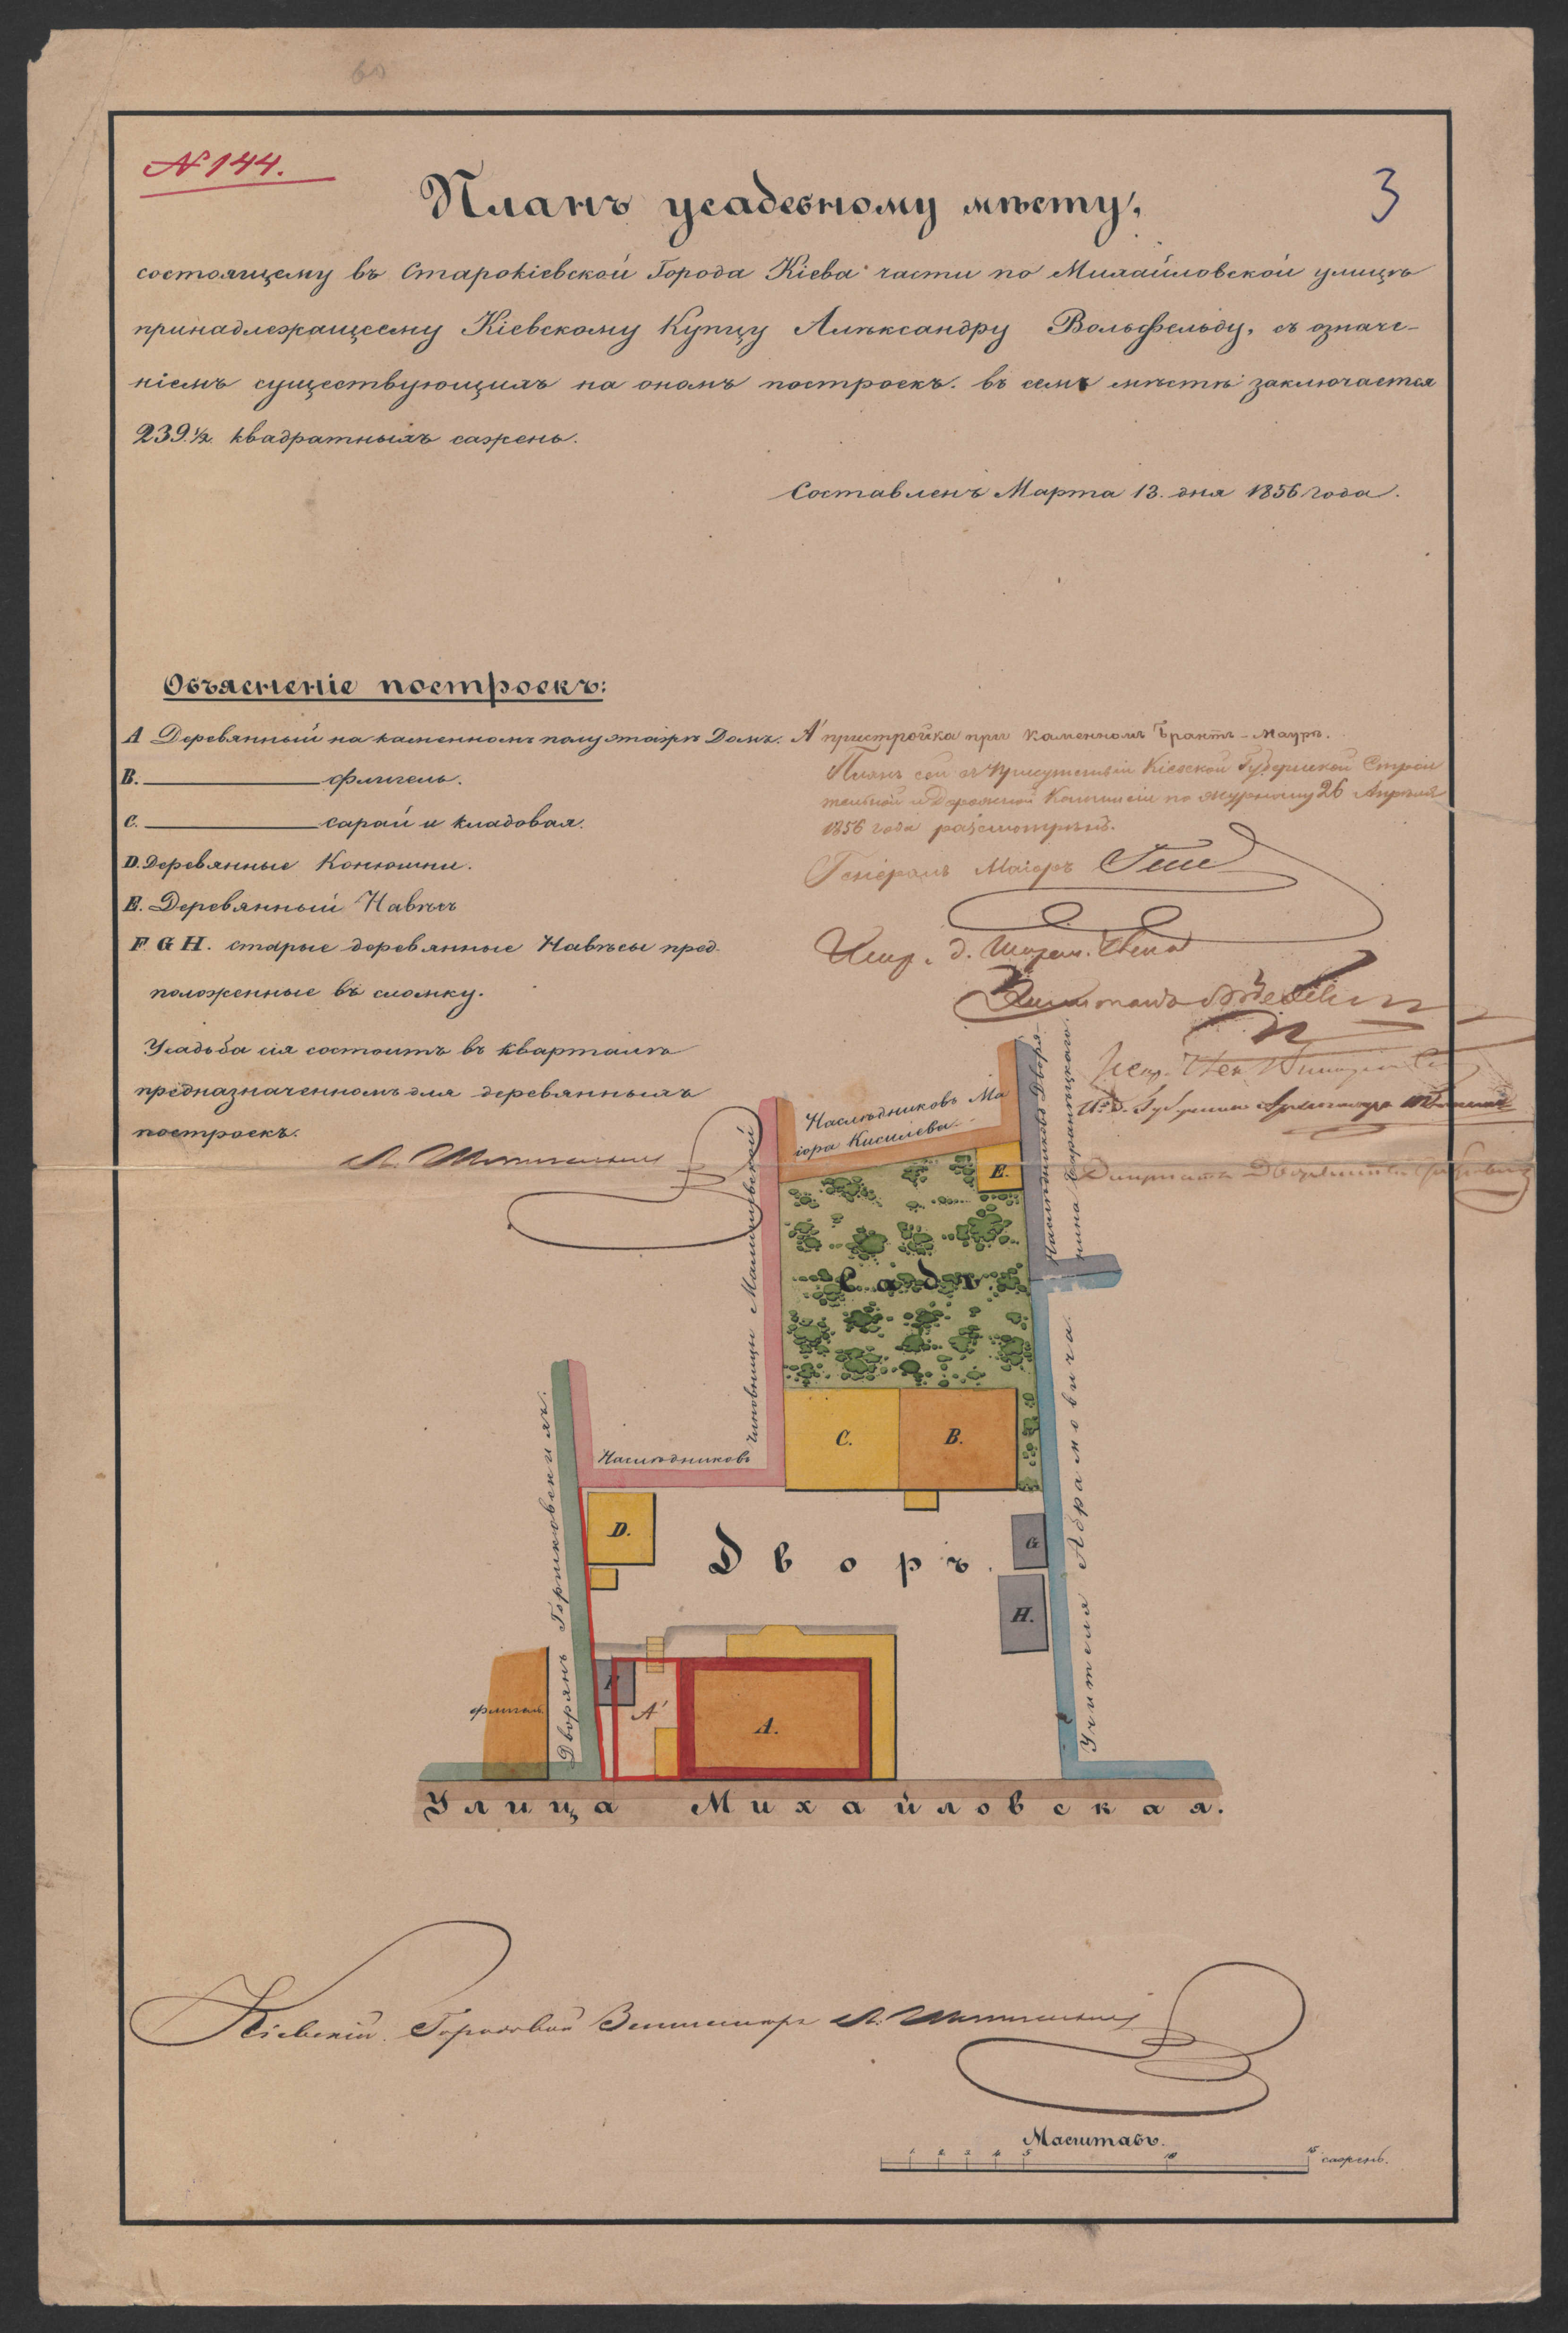 60
№ 144.
3
Планъ усадебному мѣсту,
состоящему въ Старокіевской Города Кіева части по Михайловской улицѣ
принадлежащему Кіевскому Купцу Алѣксандру Вольфельду, съ означе-
ніемъ существующихъ на ономъ построекъ. въ семъ мѣстѣ заключается
239.½ квадратныхъ сажень.
Составленъ Марта 13. дня 1856 года.
Объясненіе построекъ:
A Деревянный на каменномъ полуэтажѣ Домъ.
B. флигель.
C. сарай и кладовая.
D. Деревянные Конюшни.
E. Деревянный Навѣсъ
F. G H. старые деревянные Навѣсы пред-
положенные въ сломку.
Усадьба сія состоитъ въ кварталѣ
предназначенномъ для деревянныхъ
построекъ.
A' пристройка при каменномъ Брантъ-Маурѣ.
Планъ сей въ Присутствіи Кіевской Губернской Строи
тельной и Дорожной Коммисіи по журналу 26 Апрѣля
1856 года разсмотрѣнъ.
Генералъ Маіоръ
Наслѣдниковъ Ма
іора Кисилева.
Наслѣдниковъ Дворя-
нина
E.
Садъ
чиновницы
Наслѣдниковъ
C.
B.
D.
Дворъ.
G
H.
Учителя Абрамовича.
Дворянъ
флигель
A'
A.
Улица Михайловская.
Кіевскій Городовой Землемѣръ
Масштабъ.
1 2 3 4 5 10 15 сажень.